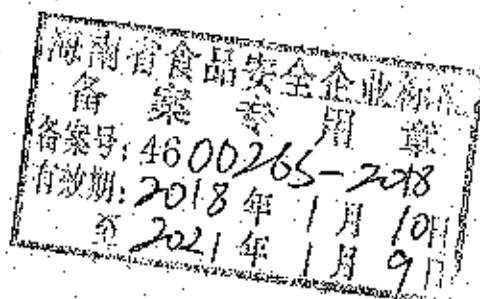 海南省食品安全企业标准
备案专用章
备案号:4600265-2018
有效期:2018年1月10日
至2021年1月9日